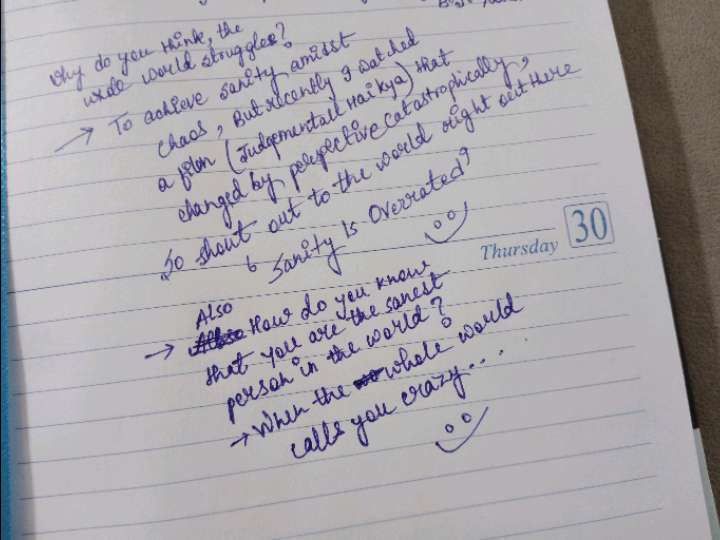 Why do you think, the
whole world struggles?
→ To achieve sanity amidst
chaos, But recently I watched
a film (Judgementall Hai Kya) that
changed by perspective catastrophically,
So shout out to the world right out there
6 Sanity Is Overrated 9
Thursday 30
Also
→ How do you know
that you are the sanest
person in the world?
→ When the whole world
calls you crazy....